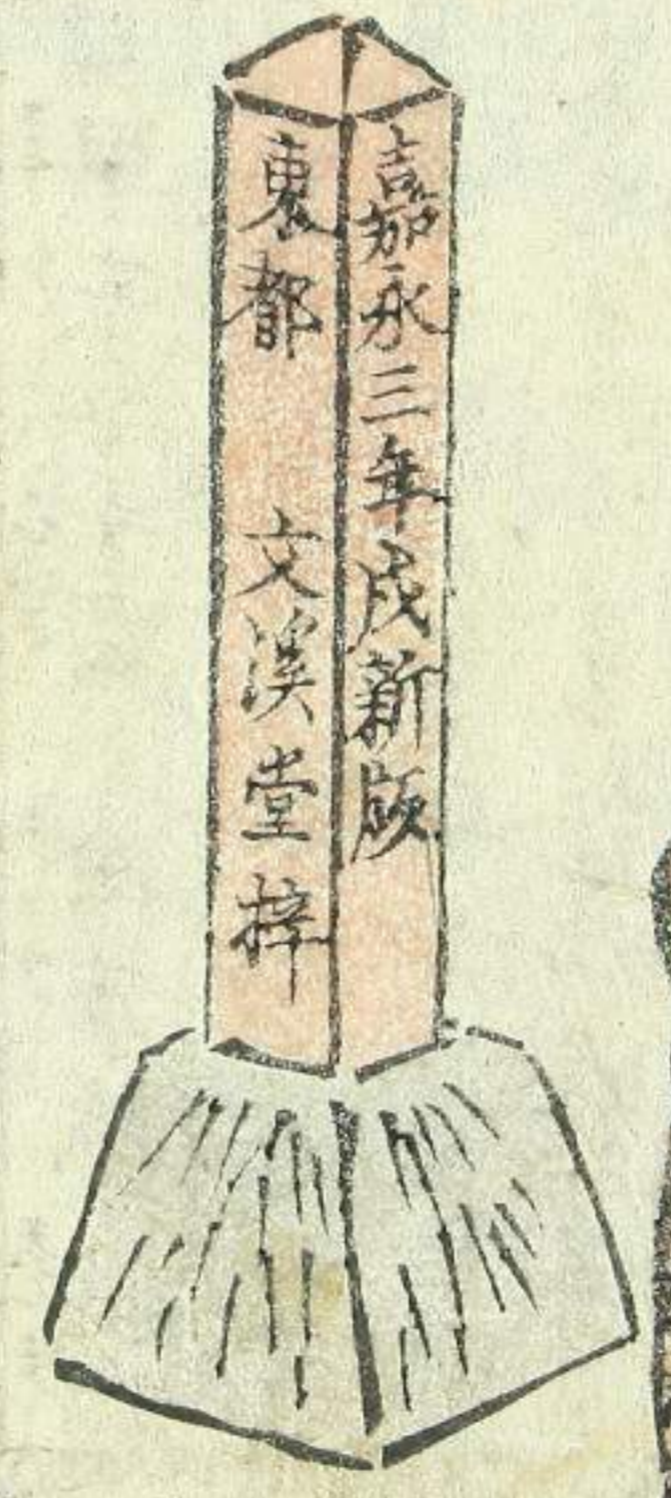 嘉永三年戌新版
東都 文溪堂梓